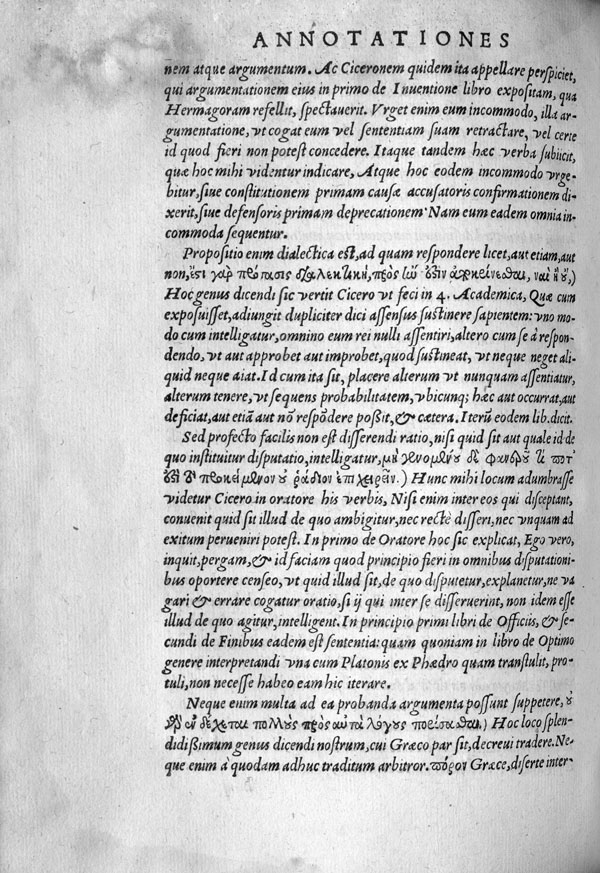 ANNOTATIONES
nem atque argumentum. Ac Ciceronem quidem ita appellare perspiciet,
qui argumentationem eius in primo de Inuentione libro expositam, qua
Hermagoram refellit, spectauerit. Vrget enim eum incommodo, illa ar-
gumentatione, vt cogat eum vel sententiam suam retractare, vel certe
id quod fieri non potest concedere. Itaque tandem hæc verba subiicit,
quæ hoc mihi videntur indicare, Atque hoc eodem incommodo vrge-
bitur, siue constitutionem primam causæ accusatoris confirmationem di-
xerit, siue defensoris primam deprecationem Nam eum eadem omnia in-
commoda sequentur.
Propositio enim dialectica est, ad quam respondere licet, aut etiam, aut
non, ἔστι γὰρ πρότασις διαλεκτικὴ, πρὸς ἣν ὅστιν ἀποκρίνεσθαι, ναὶ ἢ οὔ,)
Hoc genus dicendi sic vertit Cicero vt feci in 4. Academica, Quæ cum
exposuisset, adiungit dupliciter dici assensus sustinere sapientem: vno mo-
do cum intelligatur, omnino eum rei nulli assentiri, altero cum se à respon-
dendo, vt aut approbet aut improbet, quod sustineat, vt neque neget ali-
quid neque aiat. Id cum ita sit, placere alterum vt nunquam assentiatur,
alterum tenere, vt sequens probabilitatem, vbicunq; hæc aut occurrat, aut
deficiat, aut etiā aut nō respōdere poßit, & cætera. Iterū eodem lib. dicit.
Sed profecto facilis non est disserendi ratio, nisi quid sit aut quale id de
quo instituitur disputatio, intelligatur, μὴ γενομένου δὲ φανεροῦ τί ποτ'
ὅστι τὸ προκείμενον οὐ ῥᾴδιον ἐπιχειρεῖν.) Hunc mihi locum adumbrasse
videtur Cicero in oratore his verbis, Nisi enim inter eos qui disceptant,
conuenit quid sit illud de quo ambigitur, nec rectè disseri, nec vnquam ad
exitum perueniri potest. In primo de Oratore hoc sic explicat, Ego vero,
inquit, pergam, & id faciam quod principio fieri in omnibus disputationi-
bus oportere censeo, vt quid illud sit, de quo disputetur, explanetur, ne va
gari & errare cogatur oratio, si ij qui inter se disseruerint, non idem esse
illud de quo agitur, intelligent. In principio primi libri de Officiis, & se-
cundi de Finibus eadem est sententia: quam quoniam in libro de Optimo
genere interpretandi vna cum Platonis ex Phædro quam transtulit, pro-
tuli, non necesse habeo eam hic iterare.
Neque enim multa ad ea probanda argumenta possunt suppetere, οὐ
γὰρ ἐνδέχεται πολλοὺς πρὸς αὐτὰ λόγους πορίσασθαι.) Hoc loco splen-
didißimum genus dicendi nostrum, cui Græco par sit, decreui tradere. Ne-
que enim à quodam adhuc traditum arbitror. πόρον Græce, diserte inter-